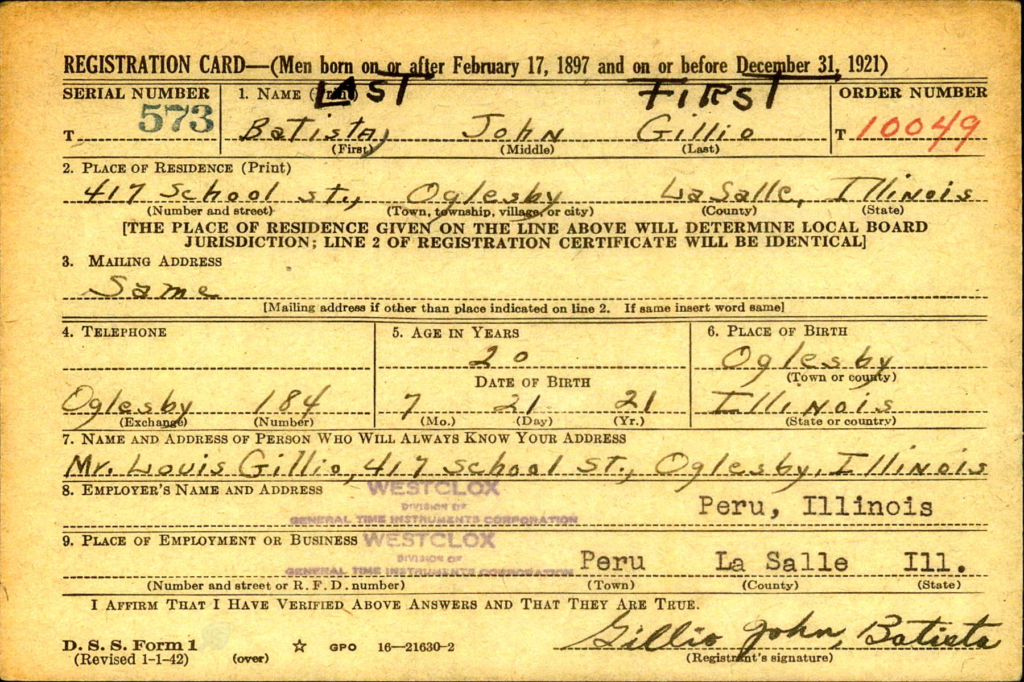 REGISTRATION CARD—(Men born on or after February 17, 1897 and on or before December 31, 1921)
LAST FIRST
SERIAL NUMBER 1. NAME (Print) ORDER NUMBER
T 573 Batista, John Gillio T 10049
(First) (Middle) (Last)
2. PLACE OF RESIDENCE (Print)
417 School St., Oglesby LaSalle, Illinois
(Number and street) (Town, township, village, or city) (County) (State)
[THE PLACE OF RESIDENCE GIVEN ON THE LINE ABOVE WILL DETERMINE LOCAL BOARD
JURISDICTION; LINE 2 OF REGISTRATION CERTIFICATE WILL BE IDENTICAL]
3. MAILING ADDRESS
Same
[Mailing address if other than place indicated on line 2. If same insert word same]
4. TELEPHONE 5. AGE IN YEARS 6. PLACE OF BIRTH
20 Oglesby
DATE OF BIRTH (Town or county)
Oglesby 184 7 21 21 Illinois
(Exchange) (Number) (Mo.) (Day) (Yr.) (State or country)
7. NAME AND ADDRESS OF PERSON WHO WILL ALWAYS KNOW YOUR ADDRESS
Mr. Louis Gillio, 417 School St., Oglesby, Illinois
8. EMPLOYER'S NAME AND ADDRESS WESTCLOX
DIVISION OF Peru, Illinois
GENERAL TIME INSTRUMENTS CORPORATION
9. PLACE OF EMPLOYMENT OR BUSINESS WESTCLOX
DIVISION OF
GENERAL TIME INSTRUMENTS CORPORATION Peru La Salle Ill.
(Number and street or R. F. D. number) (Town) (County) (State)
I AFFIRM THAT I HAVE VERIFIED ABOVE ANSWERS AND THAT THEY ARE TRUE.
Gillio John, Batista
D. S. S. Form 1
(Revised 1-1-42) (over) ☆ GPO 16—21630-2 (Registrant's signature)